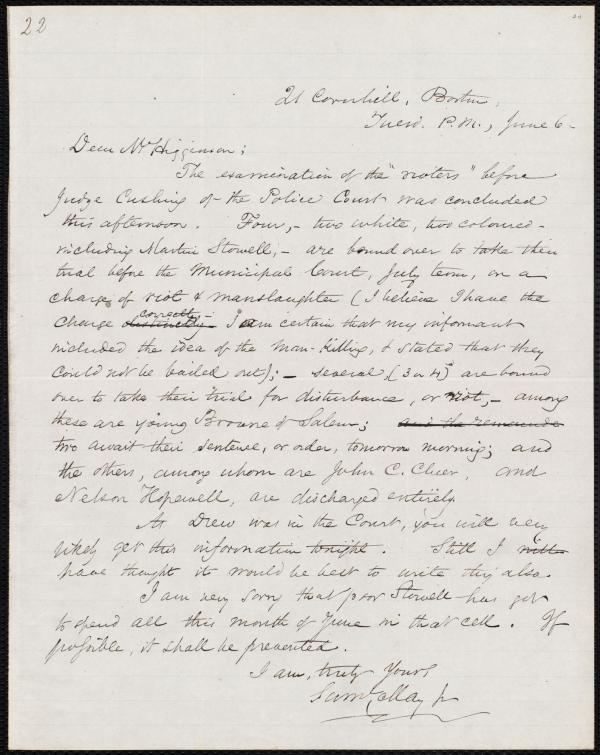 22
21 Cornhill, Boston,
Tuesd. P.M., June 6-
Dear Mr Higginson;
The examination of the "rioters" before
Judge Cushing of the Police Court was concluded
this afternoon. Four, - two white, two coloured -
including Martin Stowell, - are bound over to take their
trial before the Municipal Court, July term, on a
charge of riot & manslaughter (I believe I have the
charge distinctly correctly, - I am certain that my informant
included the idea of the Man-killing, & stated that they
could not be bailed out); - several (3 or 4) are bound
over to take their trial for disturbance, or riot, - among
these are young Browne of Salem; and the remainder
two await their sentence, or order, tomorrow morning; and
the others, among whom are John C. Cluer, and
Nelson Hopewell, are discharged entirely.
As Drew was in the Court, you will very
likely get this information tonight. Still I will
have thought it would be best to write thus also.
I am very sorry that poor Stowell has got
to spend all this month of June in that cell. If
possible, it shall be prevented.
I am, truly Yours,
Saml. May Jr